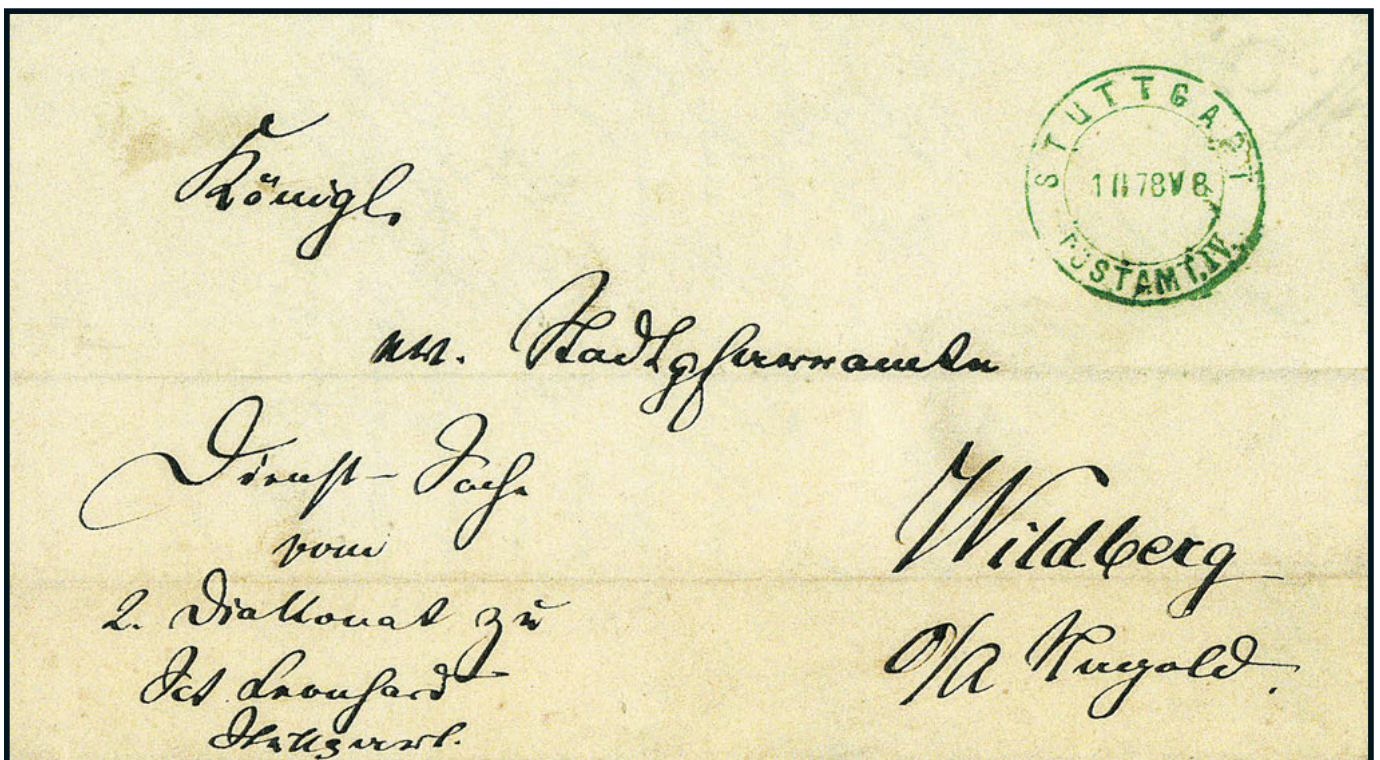 STUTTGART
1 II 78 V 8
POSTAMT. IV.
Königl.
ev. Stadtpfarramte
Dienst-Sache
vom
2. Diakonat zu
Sct Leonhard
Stuttgart.
Wildberg
O/A Nagold.